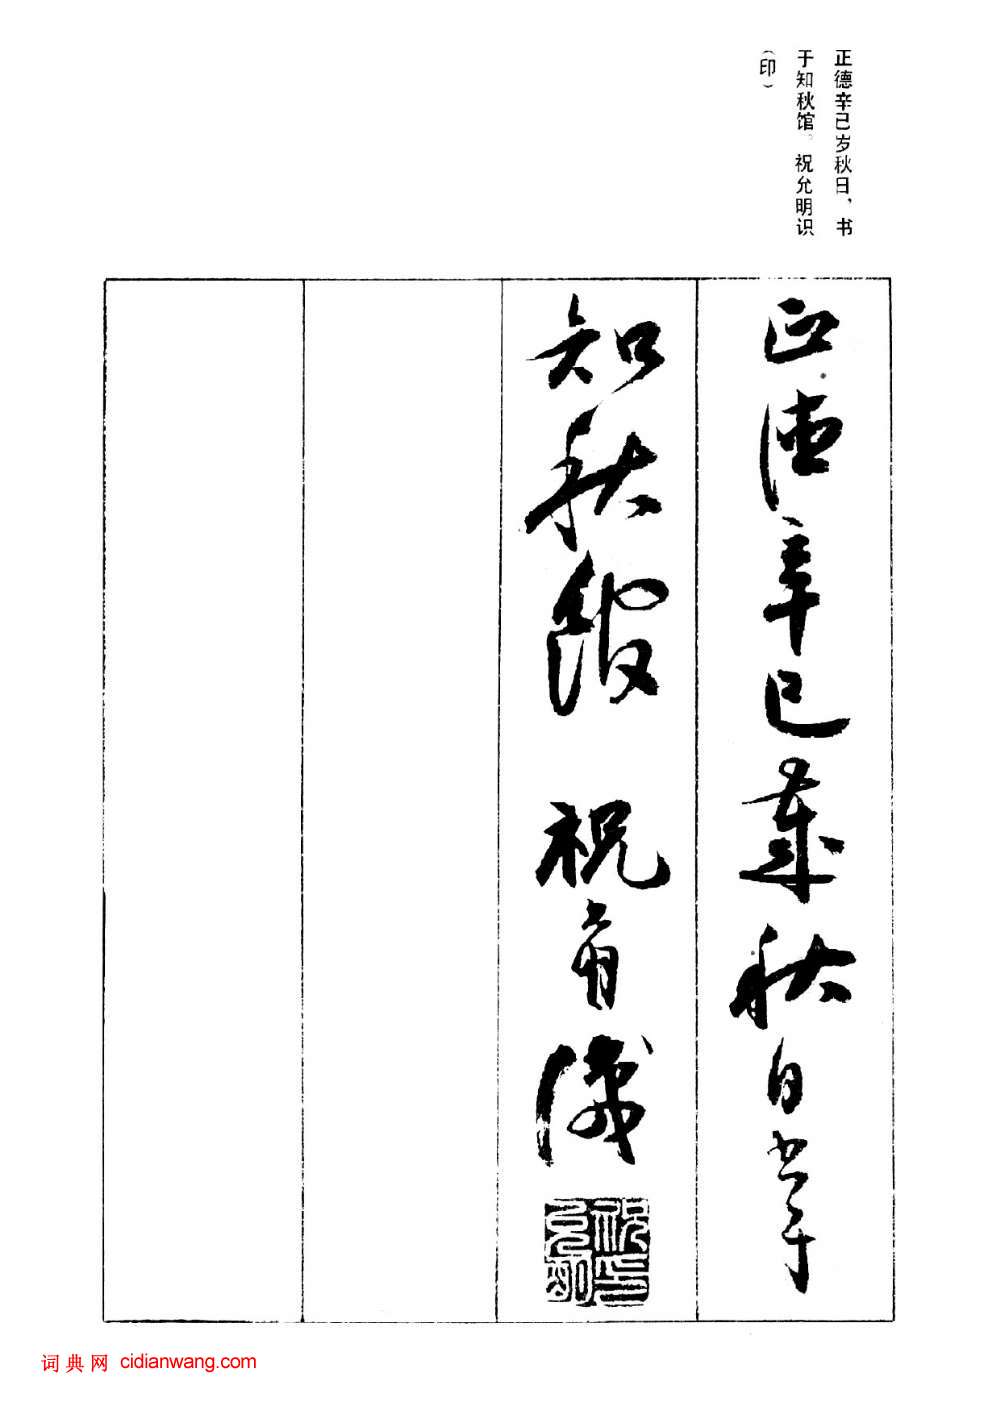 正德辛巳岁秋日、书
于知秋馆。祝允明识
（印）
正德辛巳歲秋日书于
知秋館 祝允明識
祝允明印
词典网 cidianwang.com